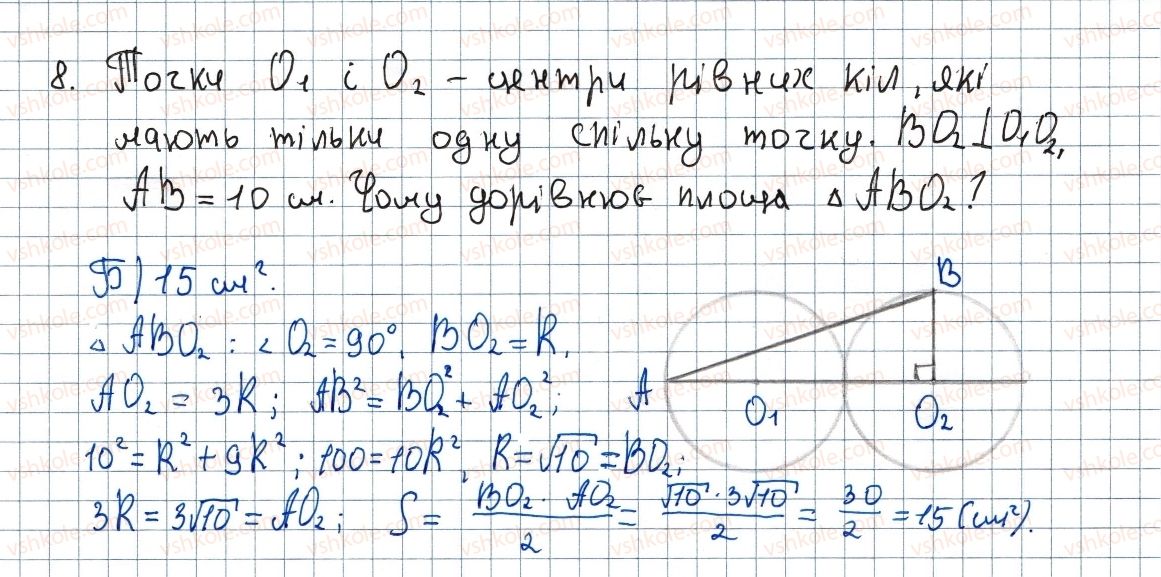 8. Точки O₁ і O₂ – центри рівних кіл, які
мають тільки одну спільну точку. BO₂⊥O₁O₂,
AB = 10 см. Чому дорівнює площа △ ABO₂?
Б) 15 см².
△ ABO₂ : ∠ O₂ = 90°, BO₂ = R,
AO₂ = 3R; AB² = BO₂² + AO₂²;
10² = R² + 9R²; 100 = 10R², R = √10 = BO₂;
3R = 3√10 = AO₂; S = (BO₂ · AO₂)/2 = (√10 · 3√10)/2 = 30/2 = 15 (см²).
B
A
O₁
O₂
vshkole.com